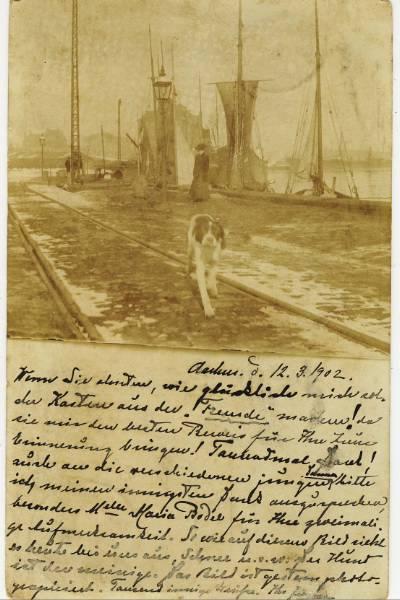 Aarhus. d. 12.3.1902.
Wenn Sie ahnten, wie glücklich mich sol-
che Karten aus der "Fremde" machen! da
sie mir den besten Beweis für Ihre liebe
Erinnerung bringen! Tausendmal Dank!
auch an die verschiedenen jungen bitte
ich meinen innigsten Dank auszusprechen,
besonders Maria Bodie für Ihre zweimali-
ge Aufmerksamkeit. So wie auf diesem Bild sieht
es heute bei uns aus, Schnee u.s.w. der Hund
ist der meinige. Das Bild ist gestern photo-
graphiert. Tausend innige Grüße. Ihr